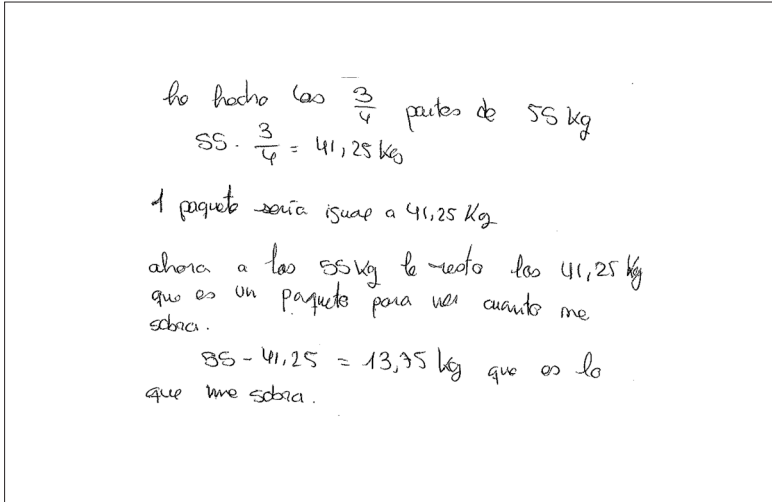 he hecho las 3/4 partes de 55 kg
55 · 3/4 = 41,25 kg
1 paquete sería igual a 41,25 Kg
ahora a los 55 kg le resto los 41,25 kg
que es un paquete para ver cuanto me
sobra.
55 - 41,25 = 13,75 kg que es lo
que me sobra.